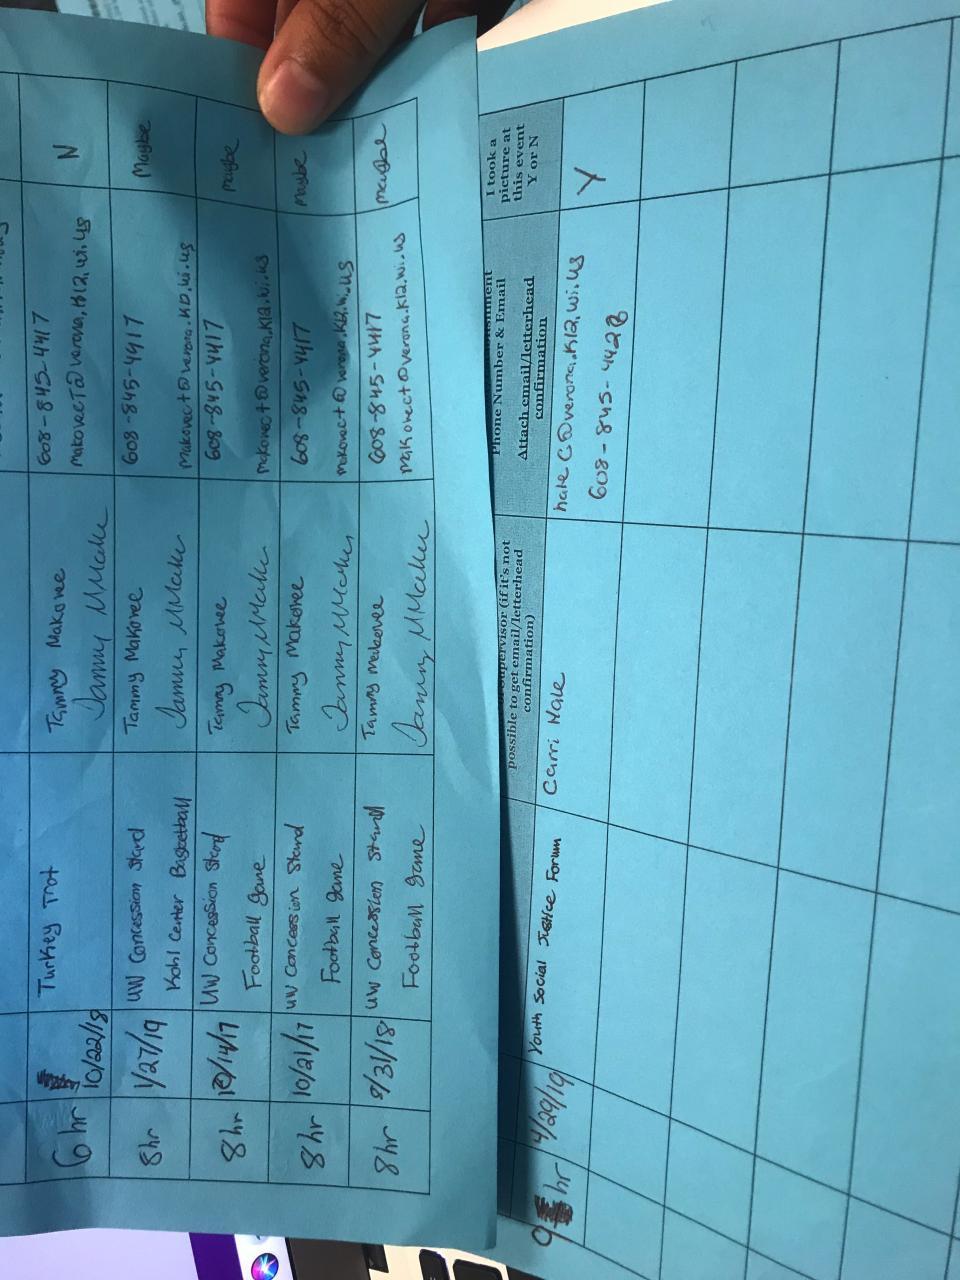 6 hr
10/22/18
Turkey Trot
Tammy Makovec
608-845-4417
makovecT@verona.k12.wi.us
N
8hr
1/27/19
UW Concession Stand
Kohl Center Basketball
Tammy Makovec
608-845-4417
makovect@verona.k12.wi.us
Maybe
8hr
10/14/17
UW Concession Stand
Football game
Tammy Makovec
608-845-4417
makovect@verona.k12.wi.us
maybe
8hr
10/21/17
UW Concession Stand
Football game
Tammy Makovec
608-845-4417
makovect@verona.k12.wi.us
maybe
8hr
8/31/18
UW Concession Stand
Football game
Tammy Makovec
608-845-4417
makovect@verona.k12.wi.us
maybe
Supervisor (if it's not
possible to get email/letterhead
confirmation)
Phone Number & Email
Attach email/letterhead
confirmation
I took a
picture at
this event
Y or N
9 hr
4/29/19
Youth Social Justice Forum
Carri Hale
haleC@verona.k12.wi.us
608-845-4428
Y